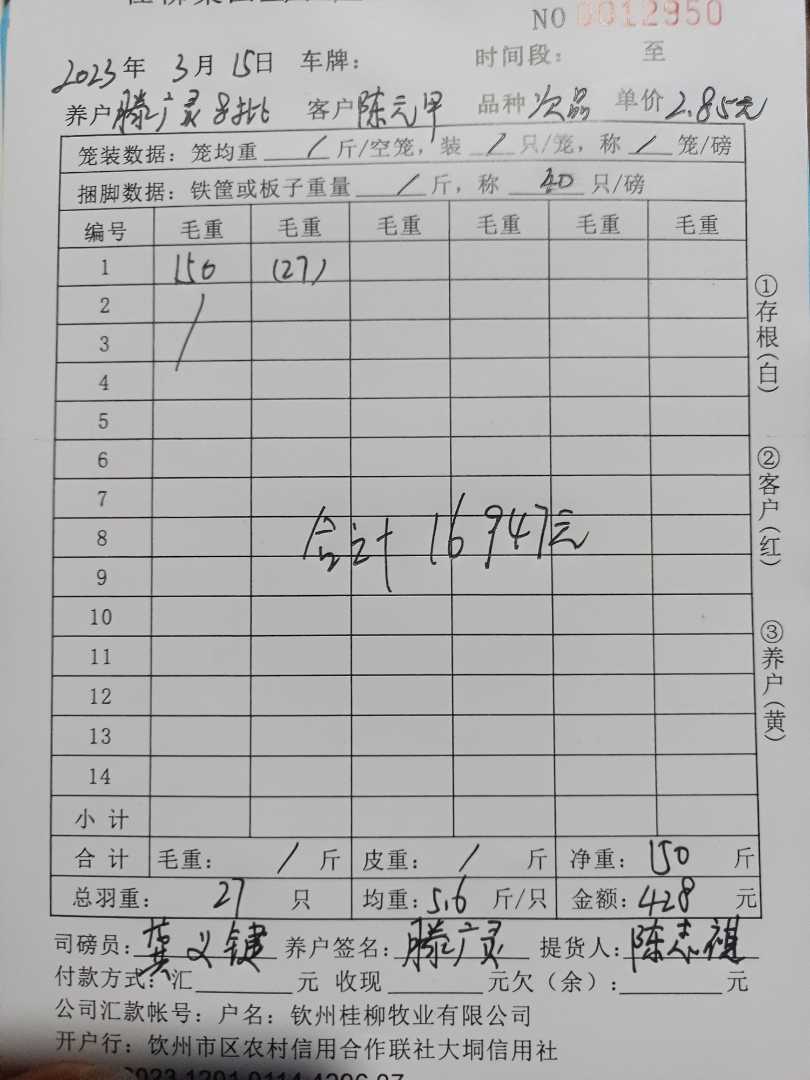 NO 0012950
2023年 3月 15日 车牌： 时间段： 至
养户 滕广灵 8批 客户 陈元甲 品种 次品 单价 2.85元
笼装数据：笼均重 / 斤/空笼，装 / 只/笼，称 / 笼/磅
捆脚数据：铁筐或板子重量 / 斤，称 只/磅
编号 毛重 毛重 毛重 毛重 毛重 毛重
1 150 (27)
2 /
3
4
5
6
7
8 合计 16947元
9
10
11
12
13
14
小计
合计 毛重： / 斤 皮重： / 斤 净重：150 斤
总羽重： 27 只 均重：5.6 斤/只 金额：428 元
司磅员：龚义键 养户签名：滕广灵 提货人：陈志祺
付款方式：汇 元 收现 元欠（余）： 元
公司汇款帐号：户名：钦州桂柳牧业有限公司
开户行：钦州市区农村信用合作联社大垌信用社
①存根(白)
②客户(红)
③养户(黄)